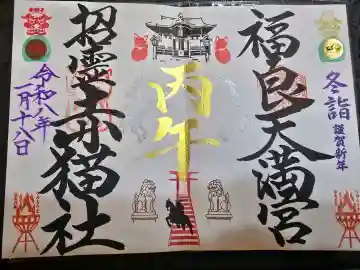 冬詣
謹賀新年
福良天満宮
丙午
招霊赤猫社
令和八年
一月十八日